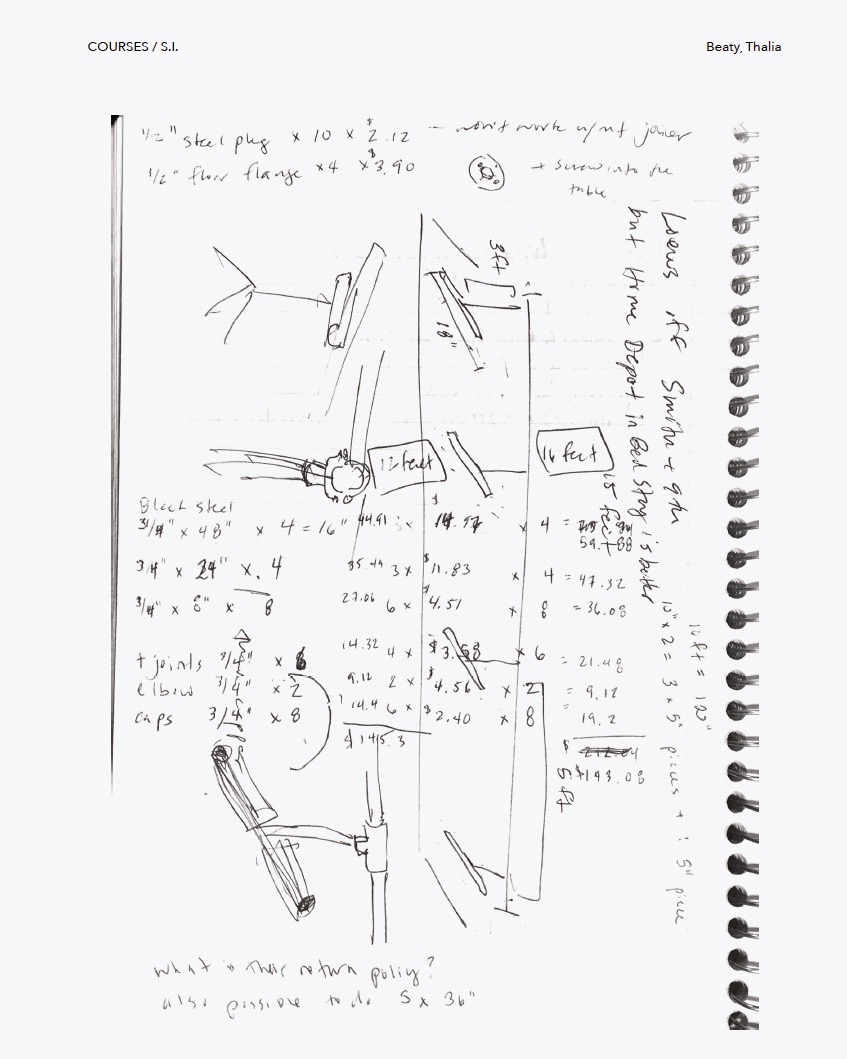 COURSES / S.I.
Beaty, Thalia
1/2" steel plug x 10 x $2.12 — won't work w/ut joiner
1/2" floor flange x4 x $3.90 + screw into the
table
3ft
18"
Lowes off Smith + 9th
but Home Depot in Bed Stuy is better
12 feet
16 feet
15 feet
Black steel
3/4" x 48" x 4 = 16" 44.91 3 x $14.97 x 4 = 59.88
3/4" x 24" x 4 35.49 3 x $11.83 x 4 = 47.32
3/4" x 8" x 8 27.06 6 x $4.51 x 8 = 36.08
t joints 3/4" x 8 14.32 4 x $3.58 x 6 = 21.48
elbow 3/4" x 2 9.12 2 x $4.56 x 2 = 9.12
caps 3/4" x 8 14.4 6 x $2.40 x 8 = 19.2
$145.3
$193.08
5 ft
10 ft = 120"
10" x 2 = 3 x 5" pieces + 1 5" piece
what is their return policy?
also possible to do 5 x 36"